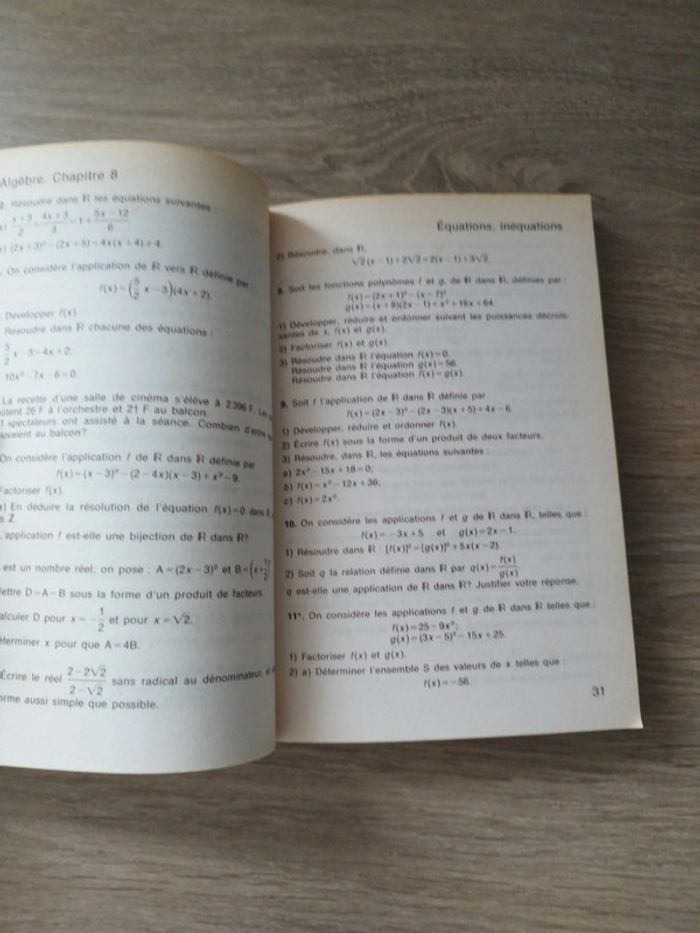 Algèbre. Chapitre 8
2. Résoudre dans R les équations suivantes :
x+3/2 + 4x+3/3 = 1 + 5x-12/6
(2x+3)² - (2x+5) = 4x(x+4)+4.
On considère l'application de R vers R définie par :
f(x) = (5/2 x - 3)(4x+2).
Développer f(x)
Résoudre dans R chacune des équations :
5/2 x - 3 = 4x + 2;
10x² - 7x - 6 = 0.
La recette d'une salle de cinéma s'élève à 2 396 F. Les
26 F à l'orchestre et 21 F au balcon.
spectateurs ont assisté à la séance. Combien d'entre
au balcon?
On considère l'application f de R dans R définie par
f(x) = (x-3)² - (2-4x)(x-3) + x² - 9.
Factoriser f(x).
En déduire la résolution de l'équation f(x) = 0 dans
Z.
L'application f est-elle une bijection de R dans R?
est un nombre réel; on pose : A = (2x-3)² et B =
D = A - B sous la forme d'un produit de facteurs.
Calculer D pour x = -1/2 et pour x = √2.
Déterminer x pour que A = 4B.
Écrire le réel 2-2√2/2-√2 sans radical au dénominateur, et
forme aussi simple que possible.
Équations, inéquations
2) Résoudre, dans R,
√2(x-1) + 2√2 = 2(x-1) + 3√2.
8. Soit les fonctions polynômes f et g, de R dans R, définies par :
f(x) = (2x+1)² - (x-7)²
g(x) = (x+8)(2x-1) + x² + 16x + 64
1) Développer, réduire et ordonner suivant les puissances décrois-
santes de x, f(x) et g(x).
2) Factoriser f(x) et g(x).
3) Résoudre dans R l'équation f(x) = 0.
Résoudre dans R l'équation g(x) = 56.
Résoudre dans R l'équation f(x) = g(x).
9. Soit f l'application de R dans R définie par
f(x) = (2x-3)² - (2x-3)(x+5) + 4x - 6.
1) Développer, réduire et ordonner f(x).
2) Écrire f(x) sous la forme d'un produit de deux facteurs.
3) Résoudre, dans R, les équations suivantes :
a) 2x² - 15x + 18 = 0;
b) f(x) = x² - 12x + 36;
c) f(x) = 2x².
10. On considère les applications f et g de R dans R, telles que :
f(x) = -3x + 5 et g(x) = 2x - 1.
1) Résoudre dans R : [f(x)]² = [g(x)]² + 5x(x-2)
2) Soit q la relation définie dans R par q(x) = f(x)/g(x)
q est-elle une application de R dans R? Justifier votre réponse.
11*. On considère les applications f et g de R dans R telles que :
f(x) = 25 - 9x²;
g(x) = (3x-5)² - 15x + 25.
1) Factoriser f(x) et g(x).
2) a) Déterminer l'ensemble S des valeurs de x telles que :
f(x) = -56.
31